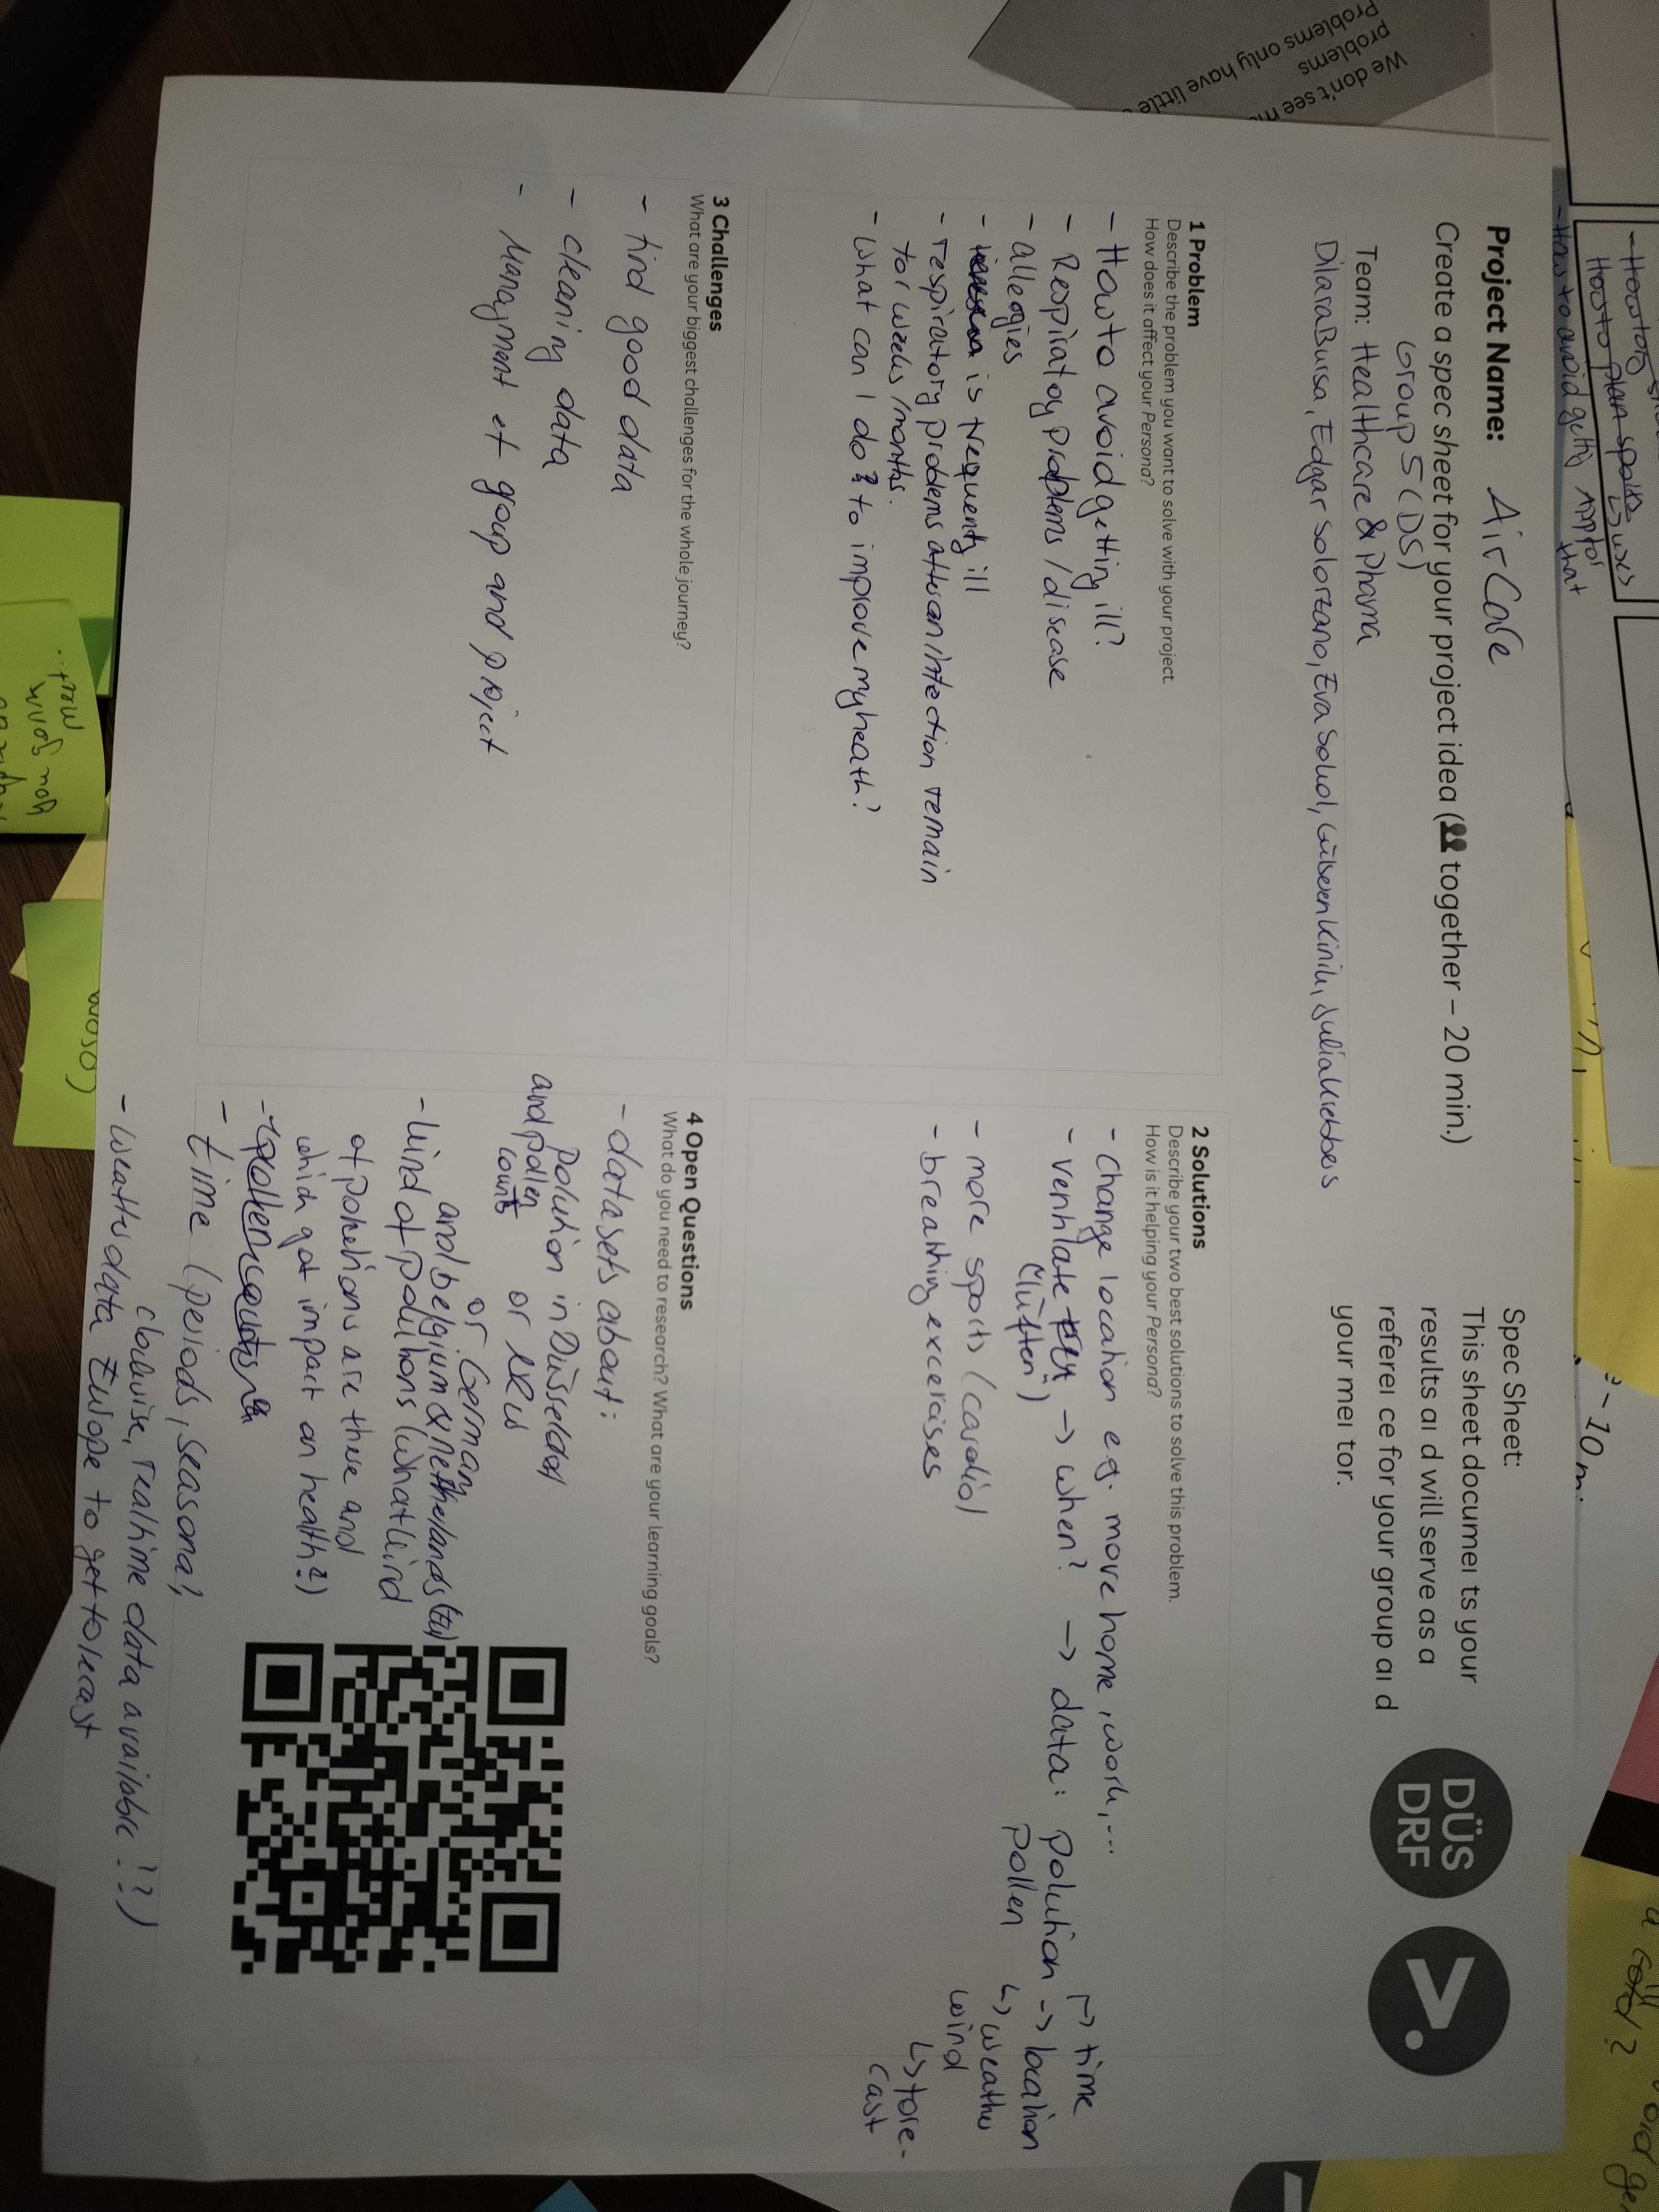 - How to plan sports
↳ uses
App for
that
- How to avoid getting
e - 10 m
a cold?
We don't see m
problems
Problems only have little
Project Name: AirCare
Create a spec sheet for your project idea ( together – 20 min.)
Group 5 (DS)
Team: Healthcare & Phama
Dilara Bursa, Edgar Solorzano, Eva Sokol, Gülseven Kinik, Julia Krebbers
Spec Sheet:
This sheet documei ts your
results ai d will serve as a
referei ce for your group ai d
your mei tor.
DÜS
DRF
>.
1 Problem
Describe the problem you want to solve with your project.
How does it affect your Persona?
- How to avoid getting ill?
- Respiratoy problems / disease
- allergies
- is frequently ill
- respiratory problems after an infection remain
for weeks / months.
- What can I do to improve my heath?
2 Solutions
Describe your two best solutions to solve this problem.
How is it helping your Persona?
- change location e.g. move home, work, ...
- ventilate → when? → data: polution → location
("lüften") pollen
↱ time
↳ weather
wind
↳ fore-
cast
- more sports (cardio)
- breathing excercises
3 Challenges
What are your biggest challenges for the whole journey?
- find good data
- cleaning data
- Managment of group and project
4 Open Questions
What do you need to research? What are your learning goals?
- datasets about:
polution in Düsseldorf
and pollen
counts
or NRW
or Germany
and belgium & netherlands (EU)
- kind of polutions (what kind
of polutions are there and
which got impact on health?)
- pollen counts
- time (periods, seasonal,
clockwise, realtime data available!?)
- weather data Europe to get forecast
you gonna
meet...